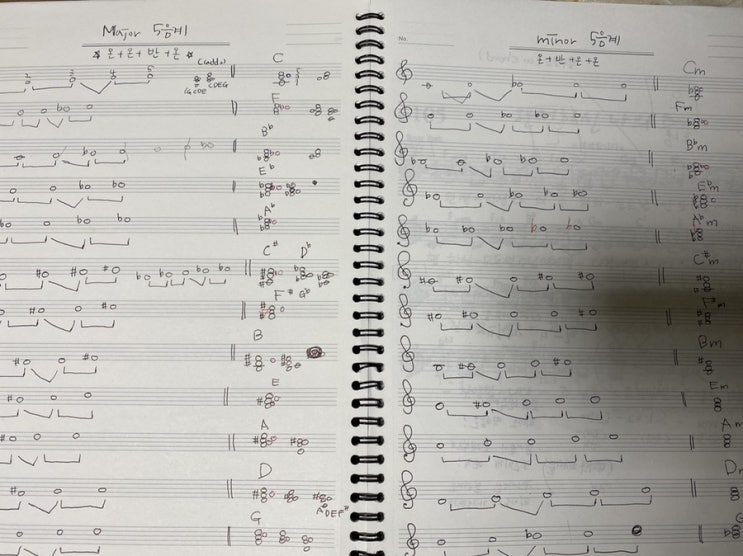 Major 5음계
* 온+온+반+온 *
(add2)
C
GCDE CDEG
F
B♭
E♭
A♭
C# D♭
F# G♭
B
E
A
D
ADEF#
G
No.
minor 5음계
온+반+온+온
Cm
Fm
B♭m
E♭m
A♭m
C#m
F#m
Bm
Em
Am